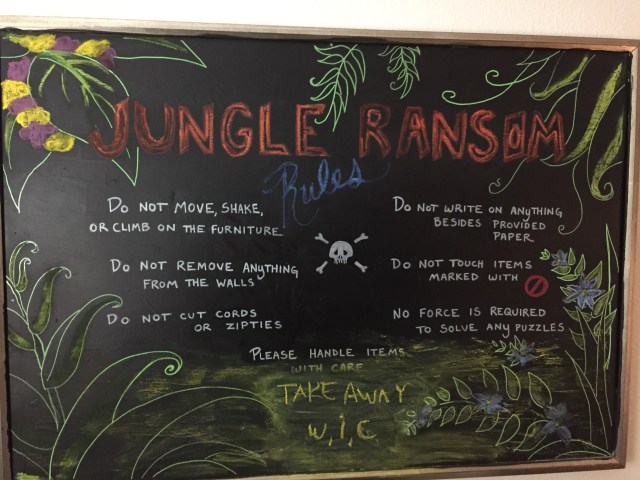 JUNGLE RANSOM
Rules
DO NOT MOVE, SHAKE,
OR CLIMB ON THE FURNITURE
DO NOT REMOVE ANYTHING
FROM THE WALLS
DO NOT CUT CORDS
OR ZIPTIES
DO NOT WRITE ON ANYTHING
BESIDES PROVIDED
PAPER
DO NOT TOUCH ITEMS
MARKED WITH
NO FORCE IS REQUIRED
TO SOLVE ANY PUZZLES
PLEASE HANDLE ITEMS
WITH CARE
TAKE AWAY
W, I, C